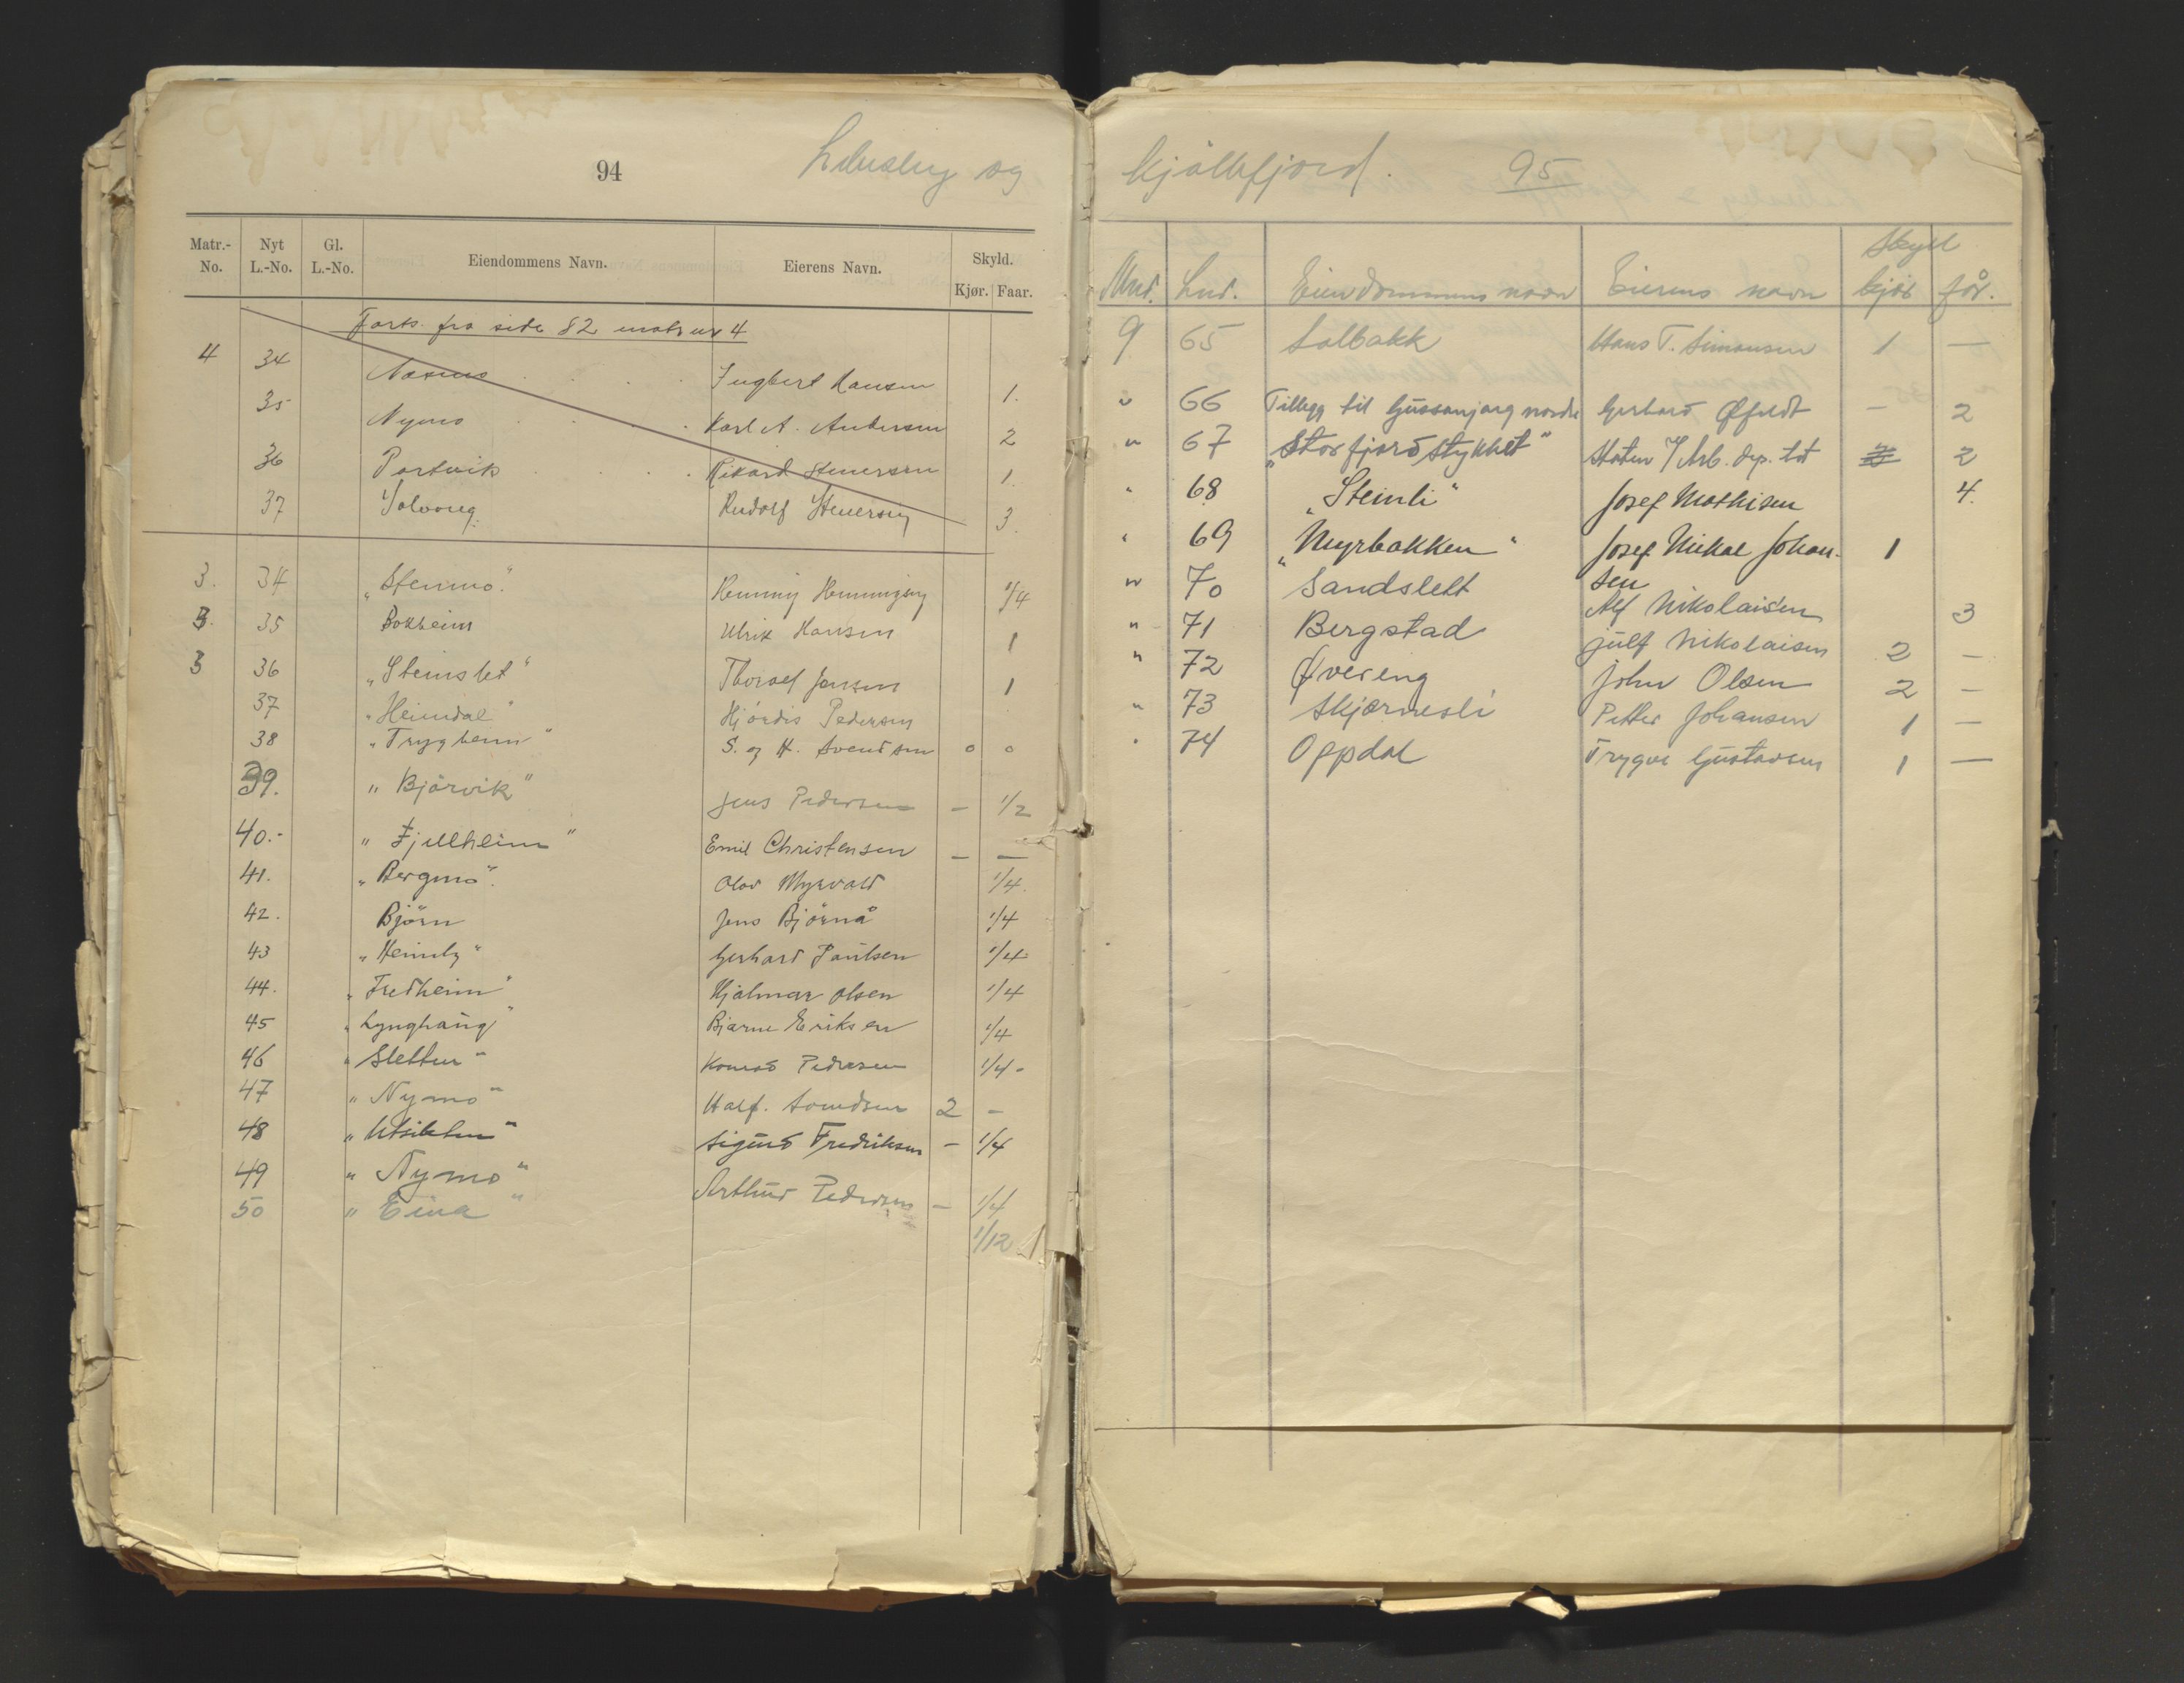 94
Lebesby og
Matr.-No. Nyt L.-No. Gl. L.-No. Eiendommens Navn. Eierens Navn. Skyld. Kjør. Faar.
Forts. fra side 82 matr nr 4
4 34 Næsmo Ingbert Hansen 1.
35 Nymo Karl A. Andersen 2
36 Portvik Rikard Stenersen 1.
37 Rudolf Stenersen 3.
3. 34 „Stenmo“ Henning Henningsen 1/4
3. 35 Bokheim Ulrik Hansen 1
3 36 „Steinslet“ Thoralf Jensen 1
37 „Heimdal“ Hjördis Pedersen
38 „Trygheim“ S. og H. Svendsen 0 0
39. „Björvik“ Jens Pedersen – 1/2
40.- „Fjellheim“ Emil Christensen – —
41. „Bergmo“. Olav Myrvold 1/4.
42. Björn Jens Björnå 1/4
43 „Heimly“ Gerhard Paulsen 1/4
44. „Fredheim“ Hjalmar Olsen 1/4
45 „Lynghaug“ Bjarne Eriksen 1/4
46 „Sletten“ Konrad Pedersen 1/4-
47 „Nymo“ Half. Svendsen 2 –
48 „Utsikten“ Sigurd Fredriksen – 1/4
49 „Nymo“ Arthur Pedersen – 1/4
50 „Eina“ 1/12
Kjöllefjord. 95
Skyld
Mnr. Lnr. Eiendommens navn Eierens navn kjör får.
9 65 Solbakk Hans T. Simonsen 1 —
" 66 Tillegg til Gussanjarg nordre Gerhard Øfeldt – 2
" 67 „Storfjordstykket“ Staten v/ Arb. dep. tot 2
" 68 „Steinli“ Josef Mathisen 4.
" 69 „Myrbakken“ Josef Mikal Johan-
sen 1
" 70 Sandslett Alf Nikolaisen 3
" 71 Bergstad Julf Nikolaisen 2 –
" 72 Øvereng John Olsen 2 –
" 73 Skjærmesli Petter Johansen 1 —
" 74 Oppdal Trygve Gustavsen 1 —